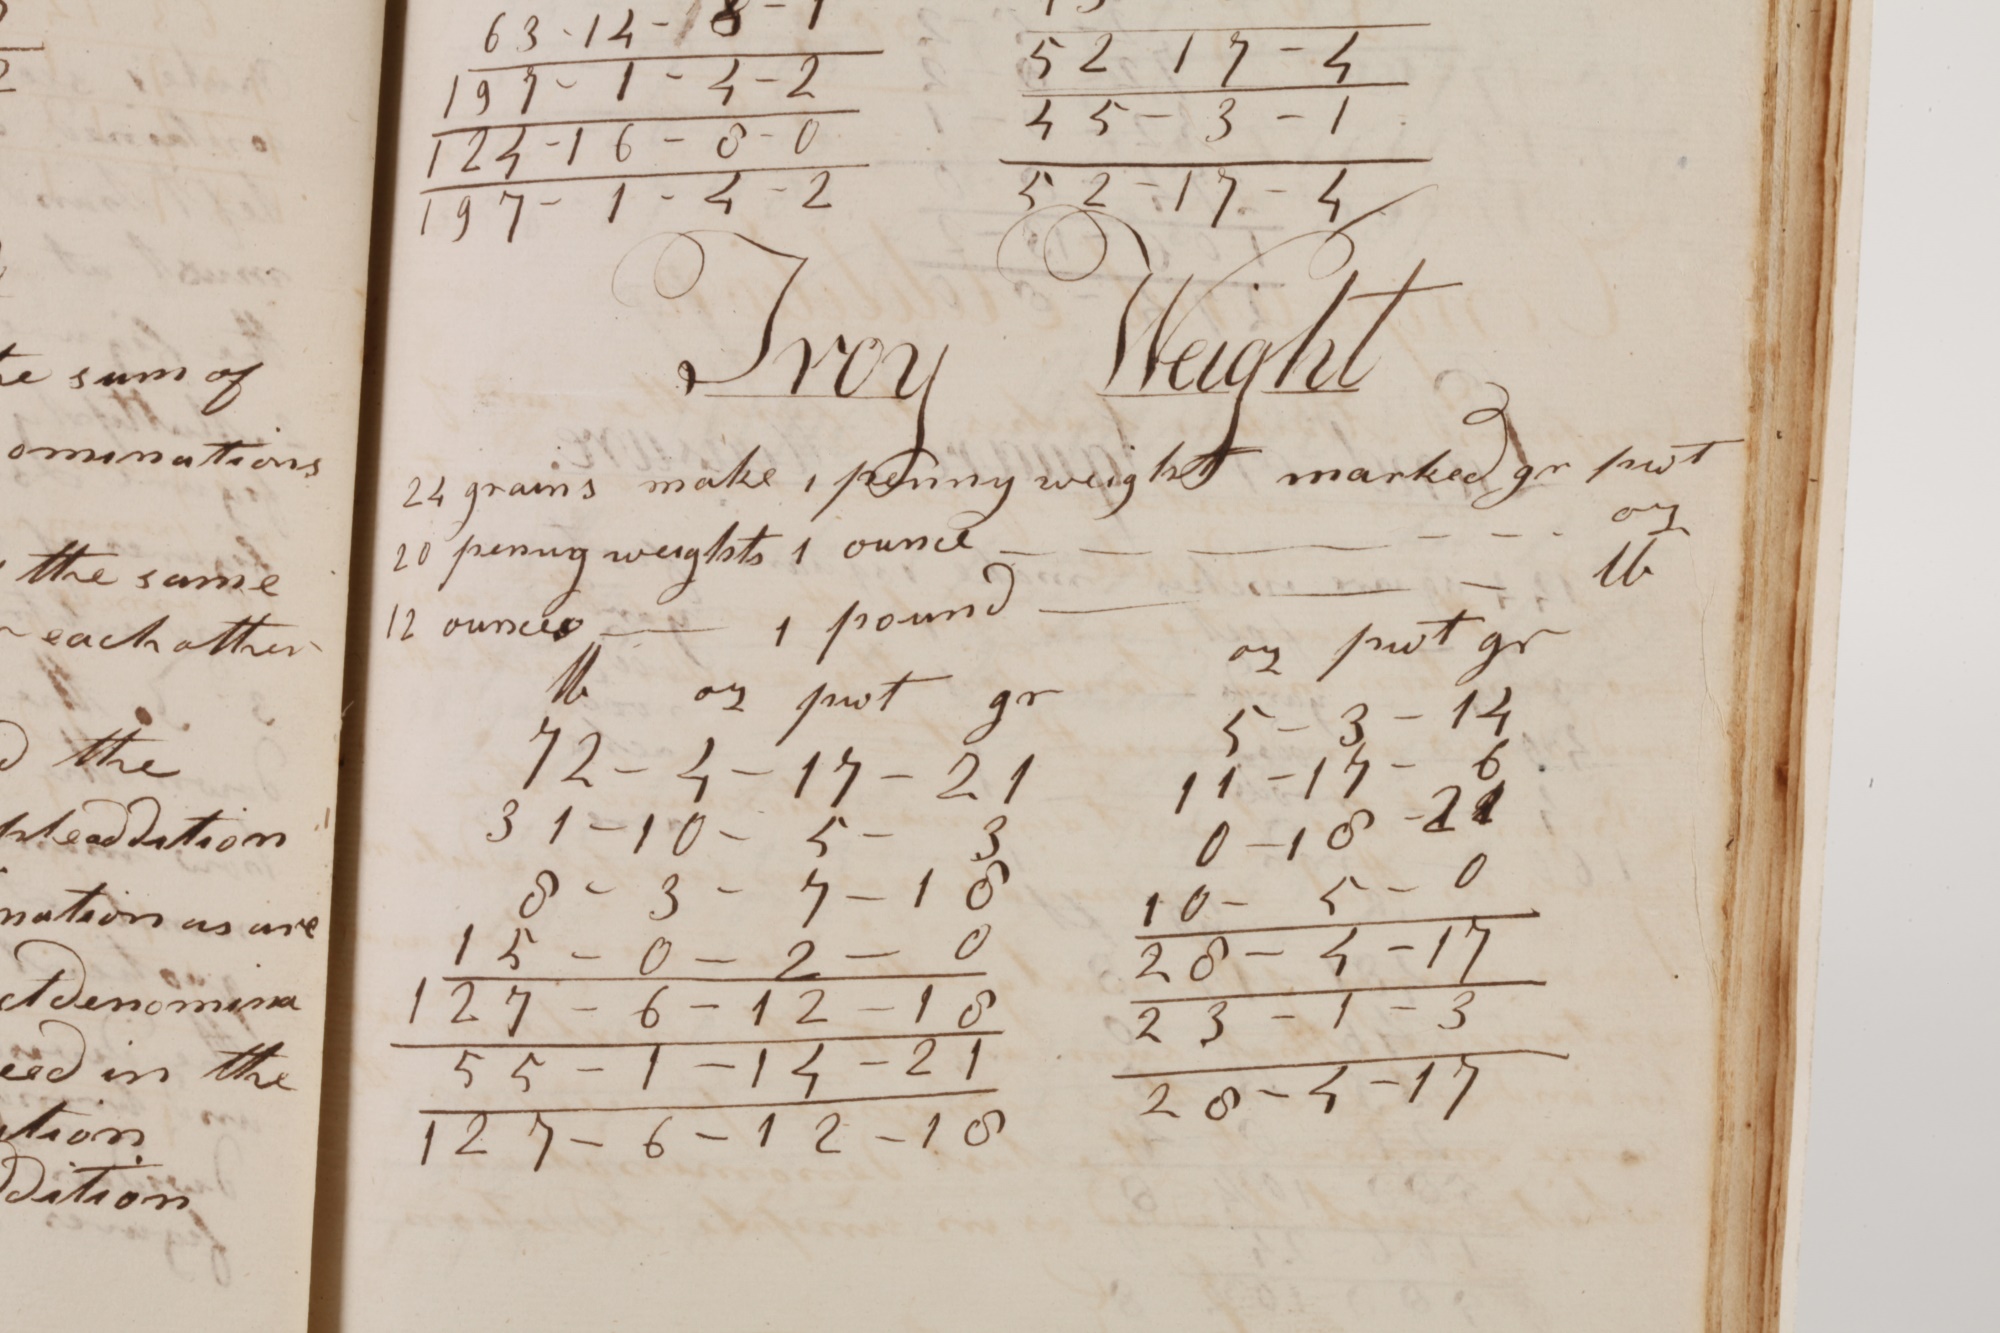 te sum of
ominations
the same
each other
the
addition
nation as are
denomina
in the
tion
dition
63-14-8-1
197-1-4-2
124-16-8-0
197-1-4-2
52 17-4
45-3-1
52-17-4
Troy Weight
24 grains make 1 penny weight marked gr pwt
20 penny weights 1 ounce — — — — - - - oz
12 ounces — 1 pound — — — lb
lb oz pwt gr
72-4-17-21
31-10-5-3
8-3-7-18
15-0-2-0
127-6-12-18
55-1-14-21
127-6-12-18
oz pwt gr
5-3-14
11-17-6
0-18-21
10-5-0
28-4-17
23-1-3
28-4-17